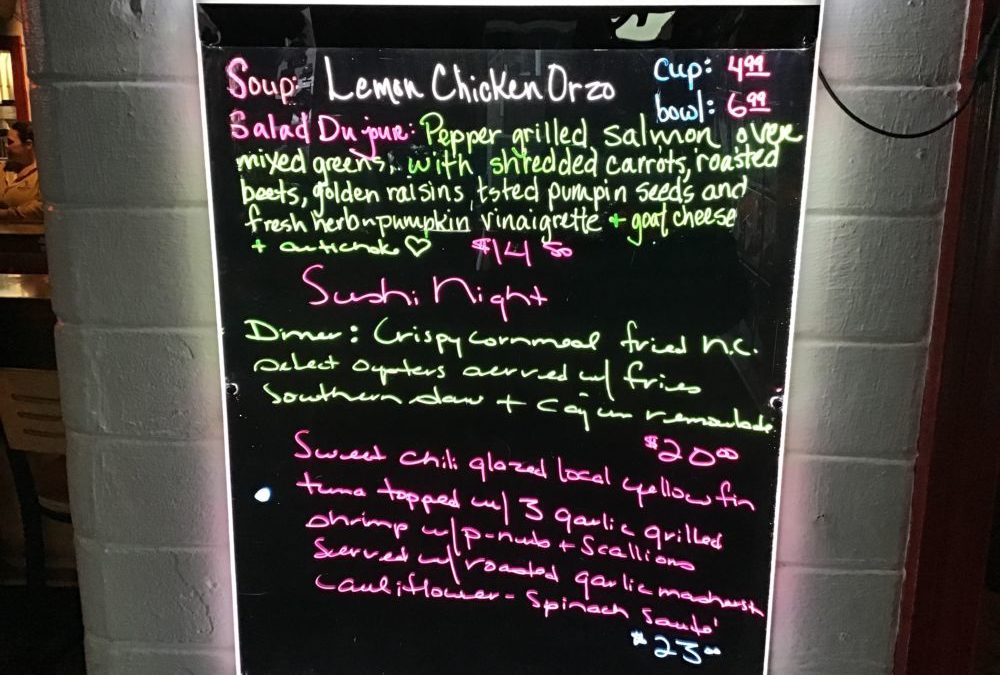 Soup: Lemon Chicken Orzo cup: 4.99
bowl: 6.99
Salad Du jour: Pepper grilled salmon over
mixed greens, with shredded carrots, roasted
beets, golden raisins, tsted pumpin seeds and
fresh herb-pumpkin vinaigrette + goat cheese
+ artichoke ♡ $14.50
Sushi Night
Dinner: Crispy cornmeal fried n.c.
select oysters served w/ fries
Southern slaw + Cajun remoulade
$20.00
Sweet chili glazed local yellow fin
tuna topped w/ 3 garlic grilled
shrimp w/ p-nuts + Scallions
Served w/ roasted garlic mashers
cauliflower - Spinach Sauté
$23.00